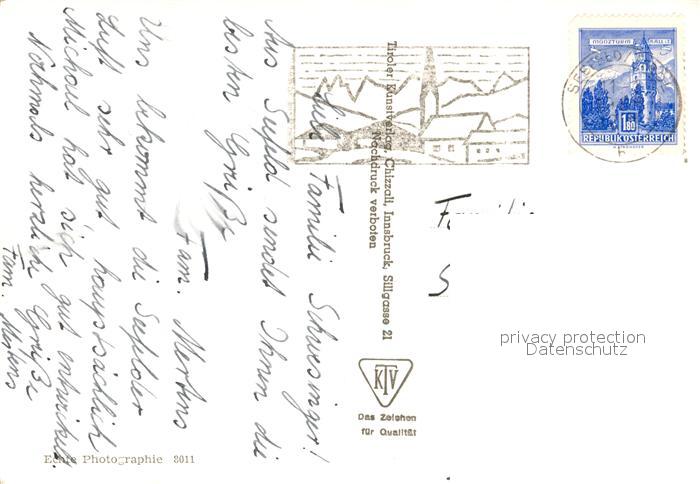 Liebe Familie Schwesinger!
Aus Seefeld sendet Ihnen die
besten Grüße
Fam. Mertens
Uns bekommt die Seefelder
Luft sehr gut hauptsächlich
Michael hat sich gut entwickelt.
Nochmals herzliche Grüße
Fam. Mertens
Echte Photographie 3011
Tiroler Kunstverlag, Chizzali, Innsbruck, Sillgasse 21
Nachdruck verboten
KTV
Das Zeichen
für Qualität
MÜNZTURM HALL i.T.
1.80
REPUBLIK ÖSTERREICH
Famili
S
privacy protection
Datenschutz